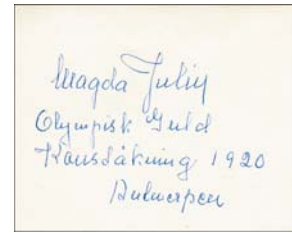 Magda Julin
Olympisk Guld
Konståkning 1920
Antwerpen